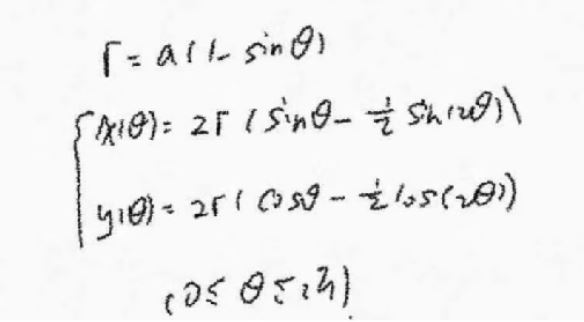 r = a(1 - sinθ)
x(θ) = 2r(sinθ - 1/2 sin(2θ))
y(θ) = 2r(cosθ - 1/2 cos(2θ))
(0 ≤ θ ≤ 2π)